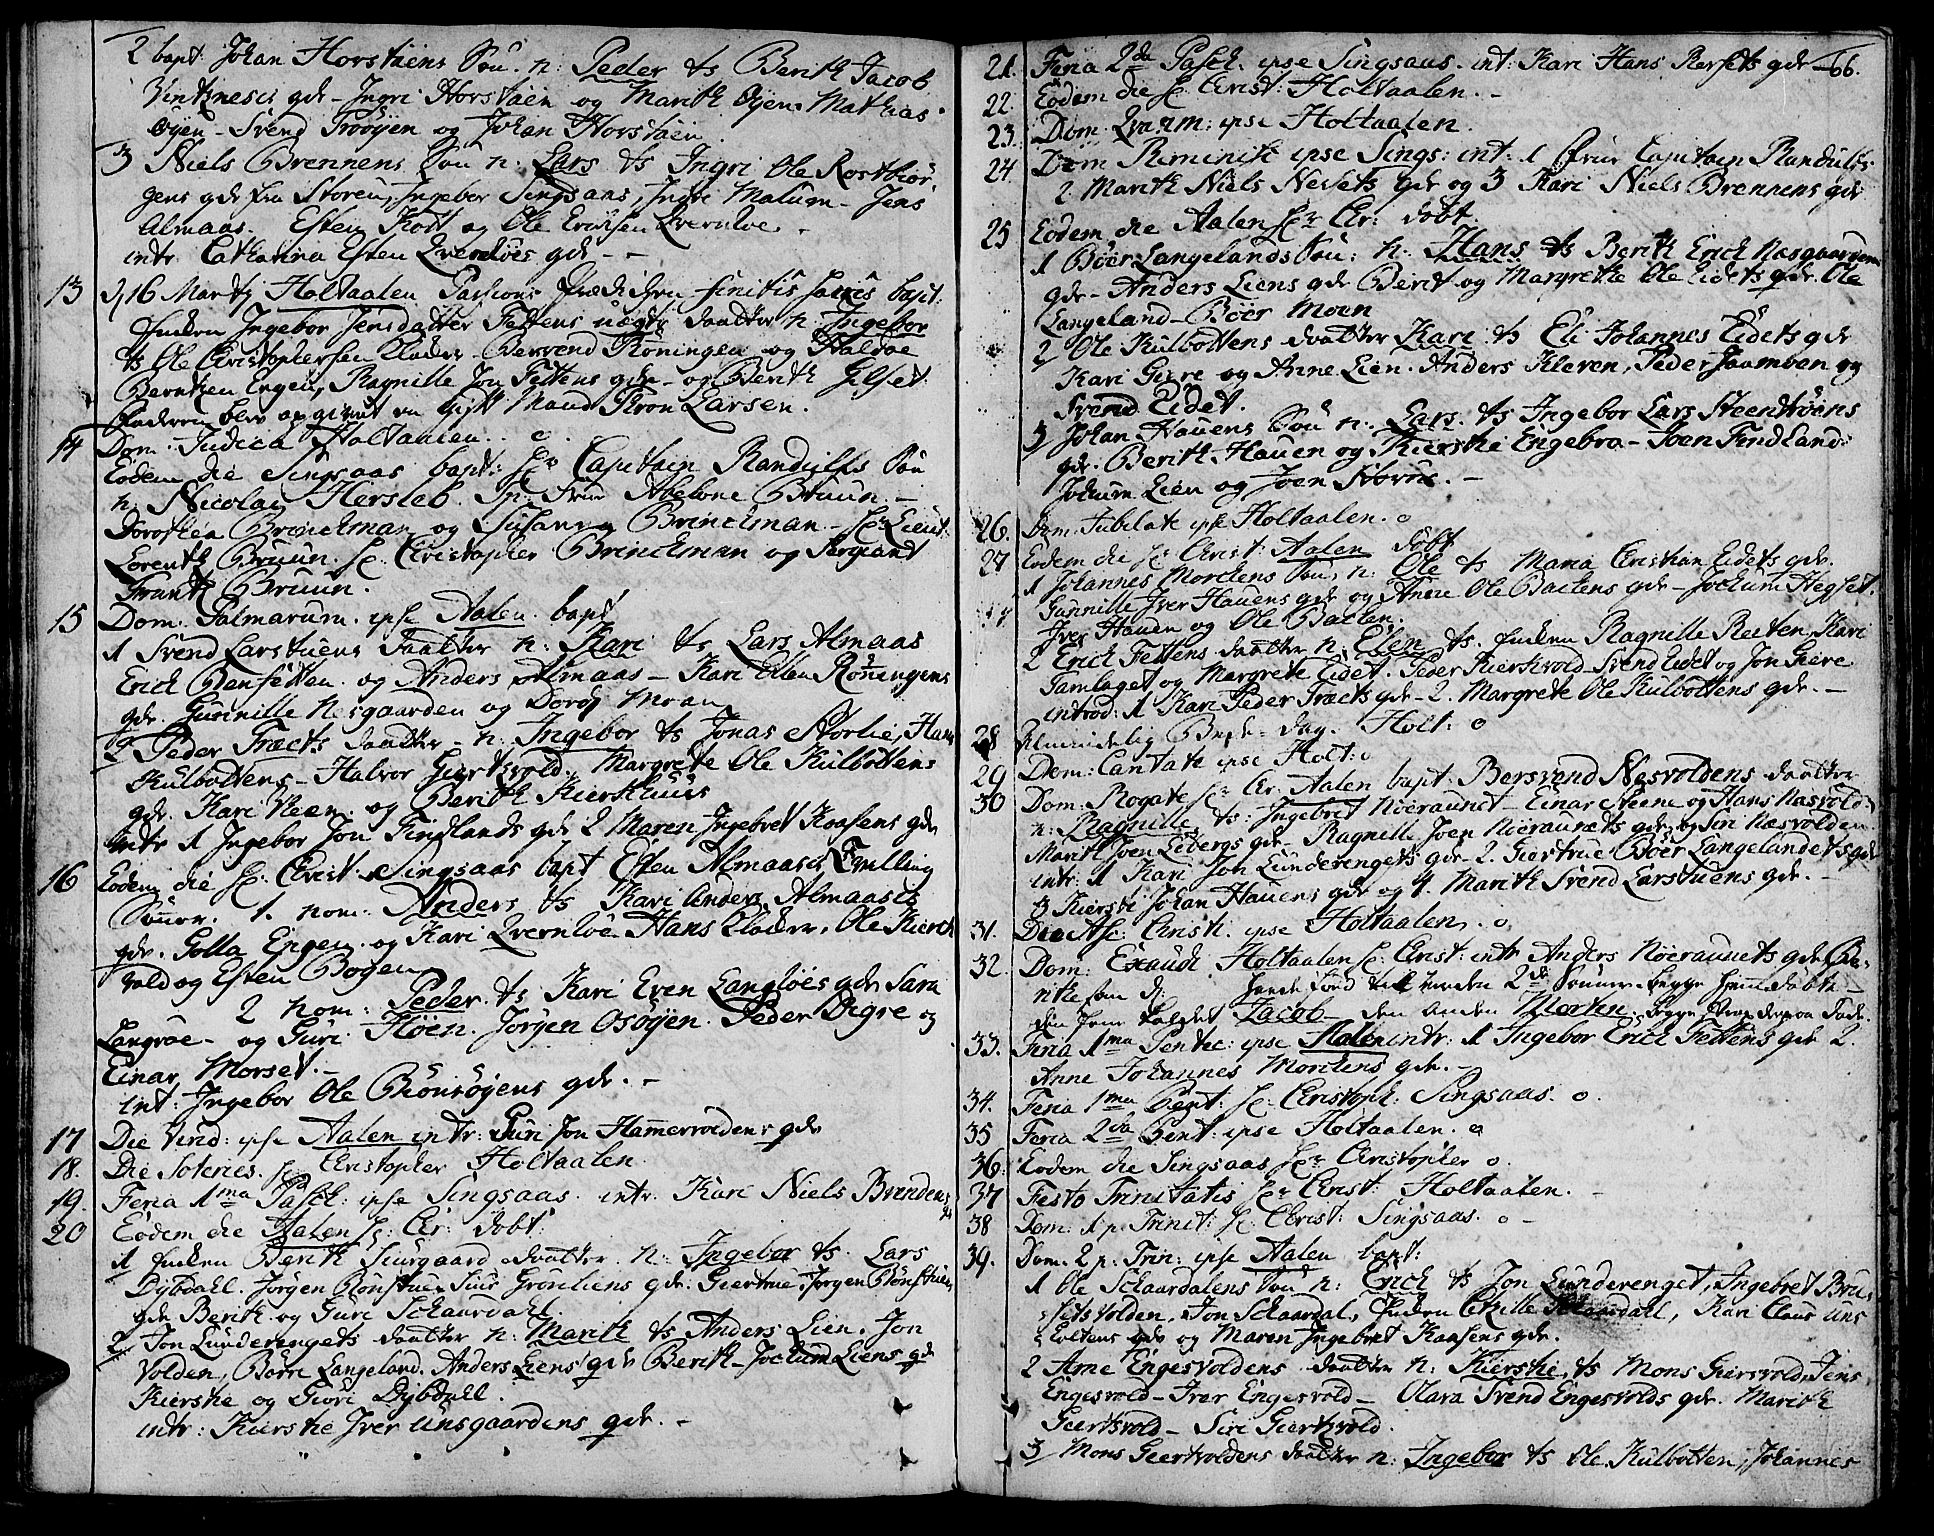 2 bapt: Johan Horstøens Søn n: Peder ts Berith Jacob
gdr - Ingri Horstøen og Marith Øyen Mathias
Øyen - Svend Troøyen og Johan Horstøen
3 Niels Brennens Søn n: Lars ts Ingri Ole Rostbiør,
gens gdr fra Støren, Ingebor Singsaas, Ingri Malum - Jens
Almaas. Esten Kott og Ole Erichsen Qvernløe.
intr. Catharina Esten Qvernløes gdr -
13 Holtaalen finitis sacris bapt:
Ingebor Jensdatter Fettens uægte daatter n. Ingebor
ts Ole Christophersen Kløder - Berrend Røningen og Haldoe
Berntsen Engen, Ragnille Jon Fettens gdr - og Berith Gilset
blev opgivet en gift Mand Thron Larsen.
14 Dom: Judica Holtaalen. o
Eodem die Singsaas bapt: Hr Capitain Randulfs Søn
n: Nicolay Hersleb. Sp: Frue Abelone Bruun. -
Dorothea Brinchman og Susanna Brinchman - Hr Lieut:
Lorentz Bruun. Hr Christopher Brinchman og Sergiant
Frantz Bruun.
15 Dom. Palmarum. ipse Aalen bapt
1 Svend Larstuens daatter n: Kari ts Lars Almaas
Erich Bensetten. og Anders Almaas - Kari Ellen Røningens
gdr. Gunnille Nesgaarden og Dorøj Moan
2 Peder Træets daatter n: Ingebor ts Jonas Storlie, Hans
Kulbottens - Halvor Giertsvold. Margrete Ole Kulbottens
gdr. Kari Veen. og Berith Kierkhuus
intr 1 Ingebor Jon Findlands gdr 2 Maren Ingebret Kaasens gdr
16 Eodem die Hr. Christ: Singsaas bapt Esten Almaases Tvilling
Sønner. 1. nom: Anders ts Kari Anders Almaases
gdr. Golla Engen. og Kari Qvernløe Hans Kløder, Ole Kierck
vold og Esten Bogen
2 nom: Peder ts Kari Even Langløes gdr Sara
Langvøe - og Guri Høen. Jørgen Osøyen. Peder Digre og
Einar Morset. -
int: Ingebor Ole Bonsøyens gdr. -
17 Die Virid: ipse Aalen intr: Guri Jon Hamervoldens gdr
18. Die Soteries. Hr Christopher Holtaalen
19. Feria 1ma Pasch: ipse Singsaas. intr. Kari Niels Brendens gdr
20 Eodem die Aalen Hr: Chr: døbt
1 Enken Berith Siurgaard daatter n: Ingebor ts. Lars
Dybdahl. Jørgen Rønstue, Siur Grønliens gdr: Giertrue Jørgen Rønstuens
gdr Berith og Guri Schaardahl.
2 Jon Lunderengets daatter n: Marith ts Anders Lien. Jon
Volden, Børre Langeland. Anders Liens gdr Berith - Jochum Liens gdr
Kierstie og Guri Dybdahl.
intr: Kierstie Iver Unsgaardens gdr. -
66.
21. Feria 2da Pasch. ipse Singsaas. int: Kari Hans Rørsets gdr -
22. Eodem die Hr Christ: Holtaalen. -
23. Dom. Qvasim: ipse Holtaalen.
24. Dom Riminisc ipse Sings: int: 1 Frue Capitain Randulfs
2. Marith Niels Neslets gdr og 3 Kari Niels Brennens gdr
25 Eodem die Aalen Hr Chr: døbt.
1 Bóer Langelands Søn: n: Hans ts Berith Erich Nesgaardens
gdr - Anders Liens gdr Berit og Margrethe Ole Eidets gdr. Ole
Langeland - Bóer Moen
2 Ole Kulbottens daatter Kari ts Eli Johannes Eidets gdr
Kari Giere og Anne Lien. Anders Kleven, Peder Joumben og
Svend Eidet.
3 Johan Hauens Søn n. Lars. ts Ingebor Lars Steentrøens
gdr. Berith Hauen og Kierstie Engebra - Joen Findland:
Jochum Lien og Joen
26. Dom: Jubilate ipse Holtaalen. o
27 Eodem die Hr Christ: Aalen døbt
1 Johannes Morckens Søn, n: Ole ts Maria Christian Eidets gdr.
Gunnille Iver Hauens gdr og Anne Ole Backens gdr - Jochum Hegset.
Iver Hauen og Ole Backen.
2 Erich Fettens daatter n. Elen ts. Enken Ragnille Reeten, Kari
Tamlaget og Margrete Eidet. Peder Kierkvold Svend Eidet og Jon Giere
introd: 1 Kari Peder Træets gdr - 2. Margrete Ole Kulbottens gdr. -
28 Almindelig Bede-dag. Holt: o
29 Dom: Cantate ipse Holt: o
30 Dom: Rogate Hr Chr. Aalen bapt: Bersvend Nesvoldens daatter
n: Ragnille ts: Ingebret Nøeraunet - Einar Steene og Hans Nasvolden
Marith Joen Lebergs gdr - Ragnille Joen Nøeraunets gdr og Siri Næsvolden
intr: 1 Kari Jon Lunderengets gdr - 2. Giertrue Bóer Langelandets gdr
3 Kiersti Johan Hauens gdr og 4. Marith Svend Larstuens gdr. -
31. Die Asc: Christi. ipse Holtaalen. o
32. Dom: Exaudi Holtaalen Hr Christ: intr Anders Nøeraunets gdr
2de Sønner - begge hjemdøbte -
den kaldet Jacob - den anden Morten.
33. Feria 1ma Pentec: ipse Aalen intr: 1 Ingebor Erich Fettens gdr 2.
Anne Johannes Morckens gdr. -
34. Feria 1ma Pent: Hr Christoph: Singsaas. o.
35 Feria 2da Pent: ipse Holtaalen. o
36. Eodem die Singsaas, Hr Christopher o.
37 Festo Trinitatis Hr Christ: Holtaalen. -
38 Dom: 1 p. Trinit: Hr Christ: Singsaas. o -
39. Dom: 2 p. Trin: ipse Aalen bapt:
1 Ole Schaardalens Søn n: Erich ts Jon Lunderenget, Ingebret Bru-
setsvolden. Jon Schaardal, Enken Schaardahl, Kari Claus Uns
voltens gdr og Maren Ingebret Kaasens gdr.
2 Arne Engesvoldens daatter n: Kierstie, ts Mons Giersvold, Jens
Engesvold - Iver Engesvold - Olava Svend Engesvolds gdr. Marith
Giertsvold - Siri Giertsvold.
3 Mons Giertvoldens daatter n: Ingebor ts Ole Kulbotten, Johannes